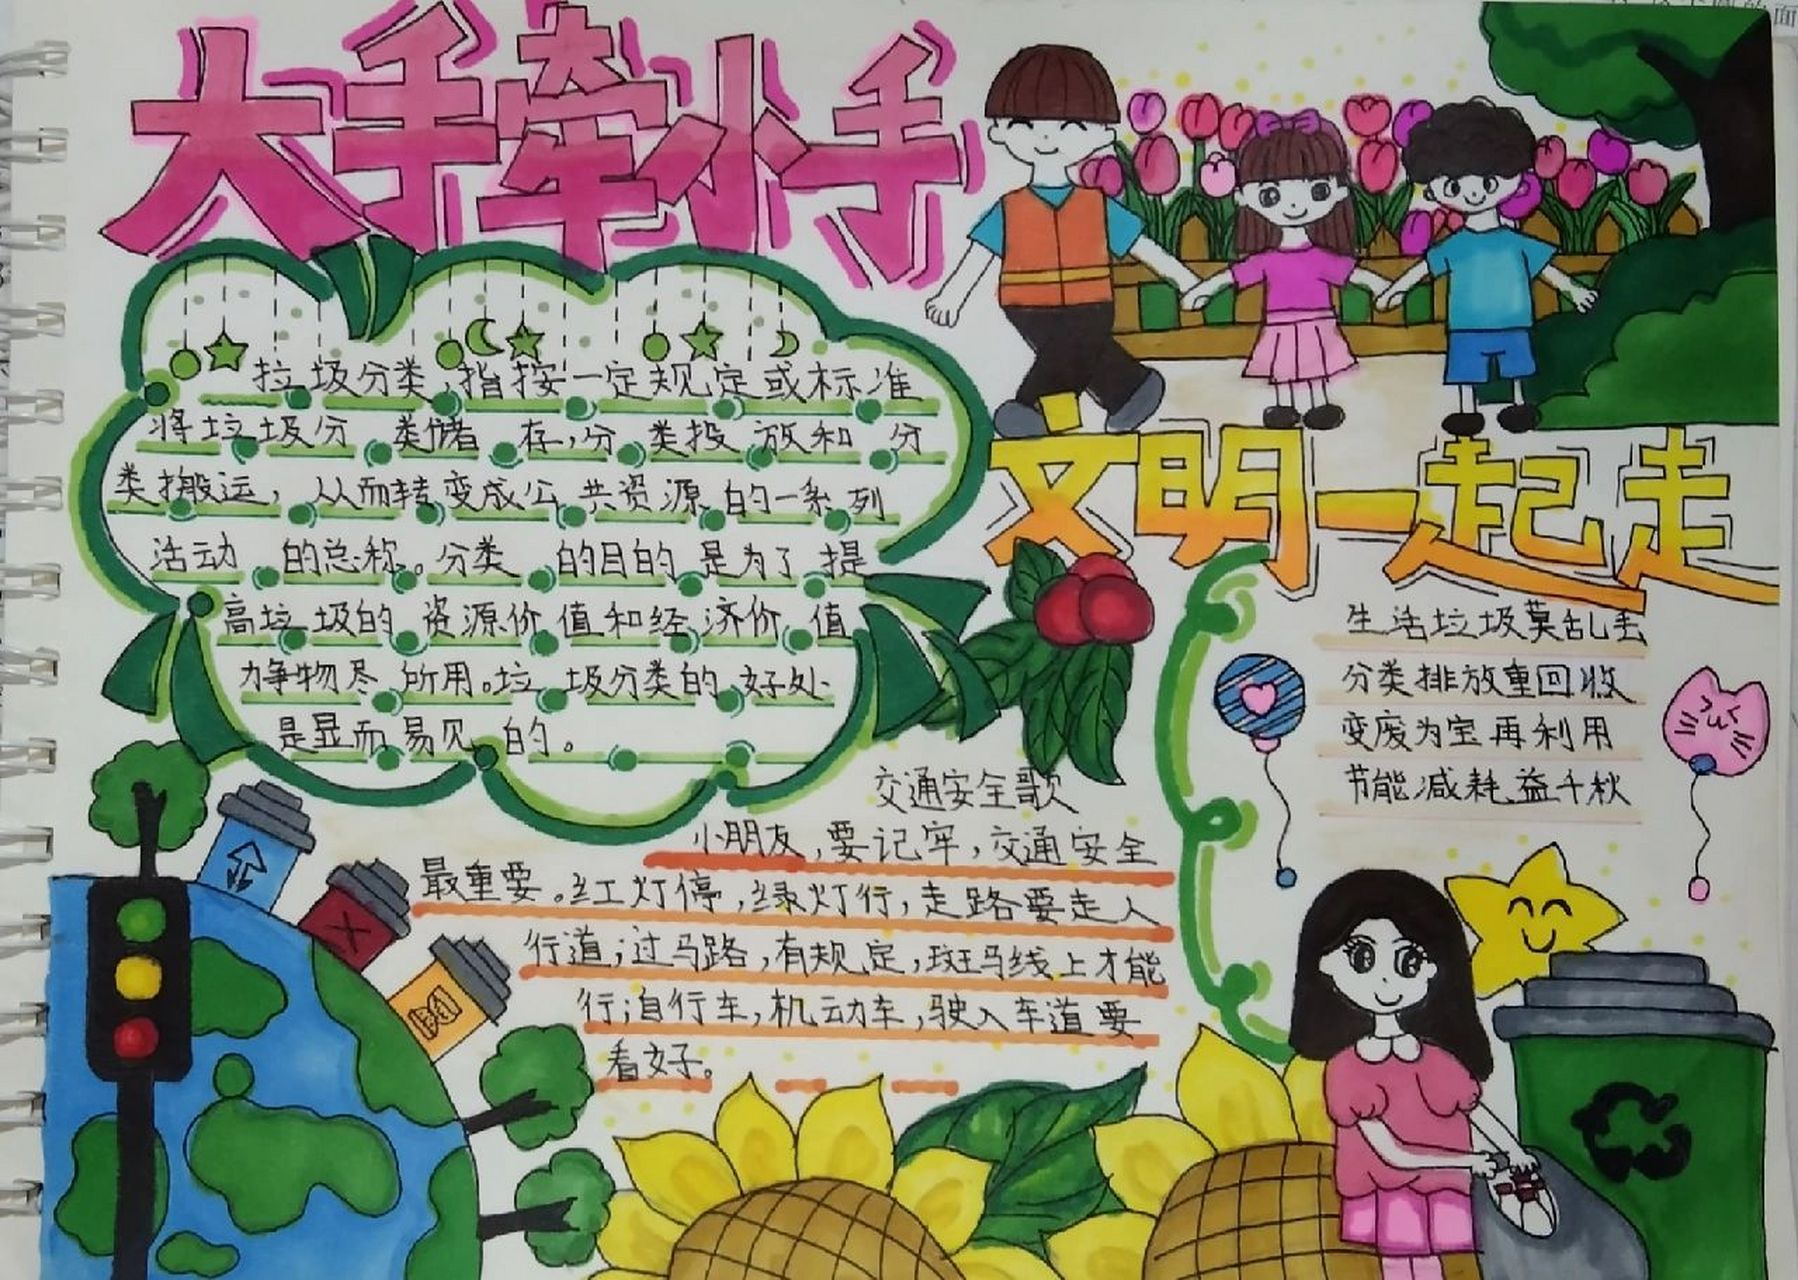 大手牵小手
文明一起走
垃圾分类,指按一定规定或标准
将垃圾分类储存,分类投放和分
类搬运,从而转变成公共资源的一系列
活动的总称。分类的目的是为了提
高垃圾的资源价值和经济价值
力争物尽所用。垃圾分类的好处
是显而易见的。
生活垃圾莫乱丢
分类排放重回收
变废为宝再利用
节能减耗益千秋
交通安全歌
小朋友,要记牢,交通安全
最重要。红灯停,绿灯行,走路要走人
行道;过马路,有规定,斑马线上才能
行;自行车,机动车,驶入车道要
看好。